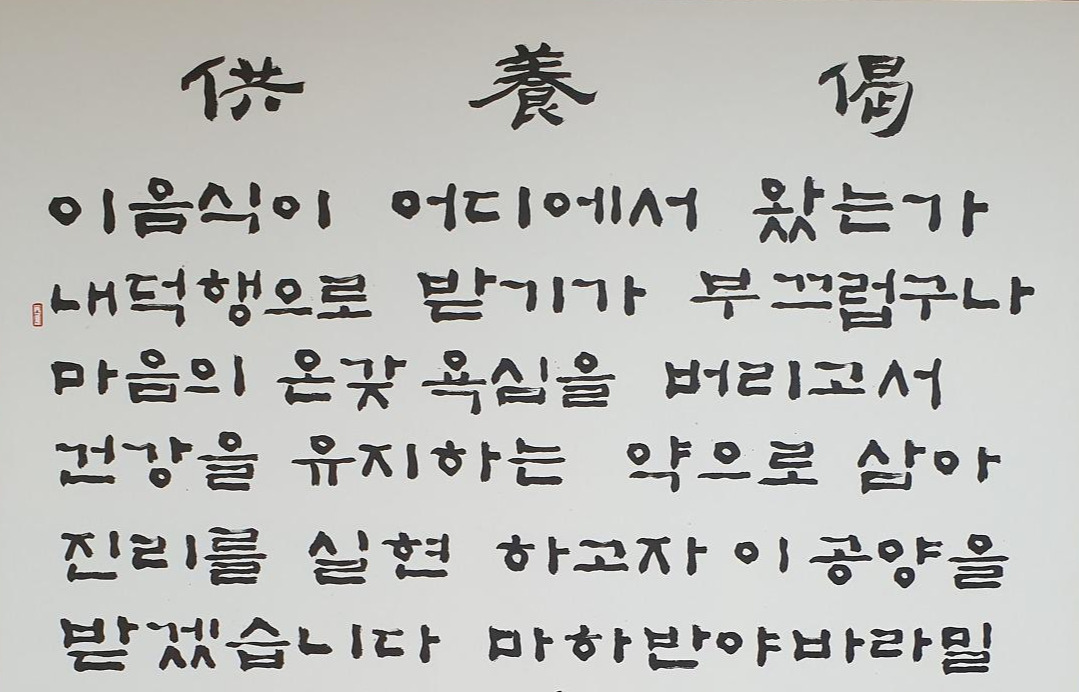 供 養 偈
이음식이 어디에서 왔는가
내덕행으로 받기가 부끄럽구나
마음의 온갖 욕심을 버리고서
건강을 유지하는 약으로 삼아
진리를 실현 하고자 이 공양을
받겠습니다 마하반야바라밀